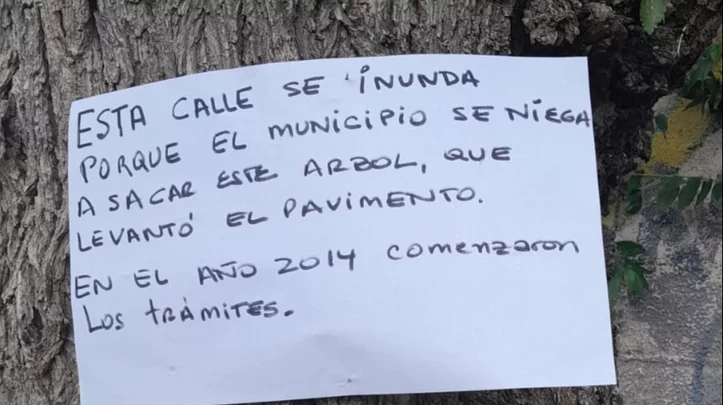 ESTA CALLE SE INUNDA
PORQUE EL MUNICIPIO SE NIEGA
A SACAR ESTE ARBOL, QUE
LEVANTÓ EL PAVIMENTO.
EN EL AÑO 2014 comenzaron
Los trámites.